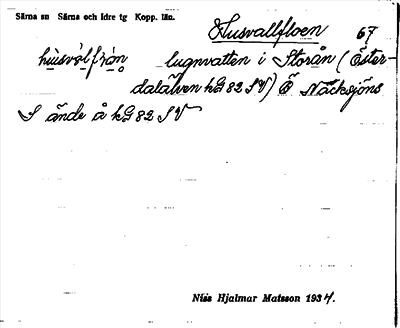 Särna sn Särna och Idre tg Kopp. län.
Husvallfloen 67
hùsvàlfrån lugnvatten i Storån (Öster-
dalälven kG 82 SV) Ö Näcksjöns
S ände å kG 82 SV
Nils Hjalmar Matsson 1934.